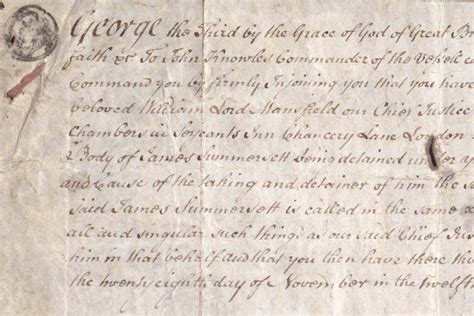 George the Third by the Grace of God of Great
faith &c To John Knowles Commander of the Vessel
Command you by firmly Injoining you that you have
beloved William Lord Mansfield our Chief Justice
Chambers in Serjeants Inn Chancery Lane London
& Body of James Summersett being detained under
and Cause of the taking and detainer of him the
said James Summersett is called in the same
all and singular such things as our said Chief
him in that behalf and that you then have there
the twenty eighth day of November in the twelfth